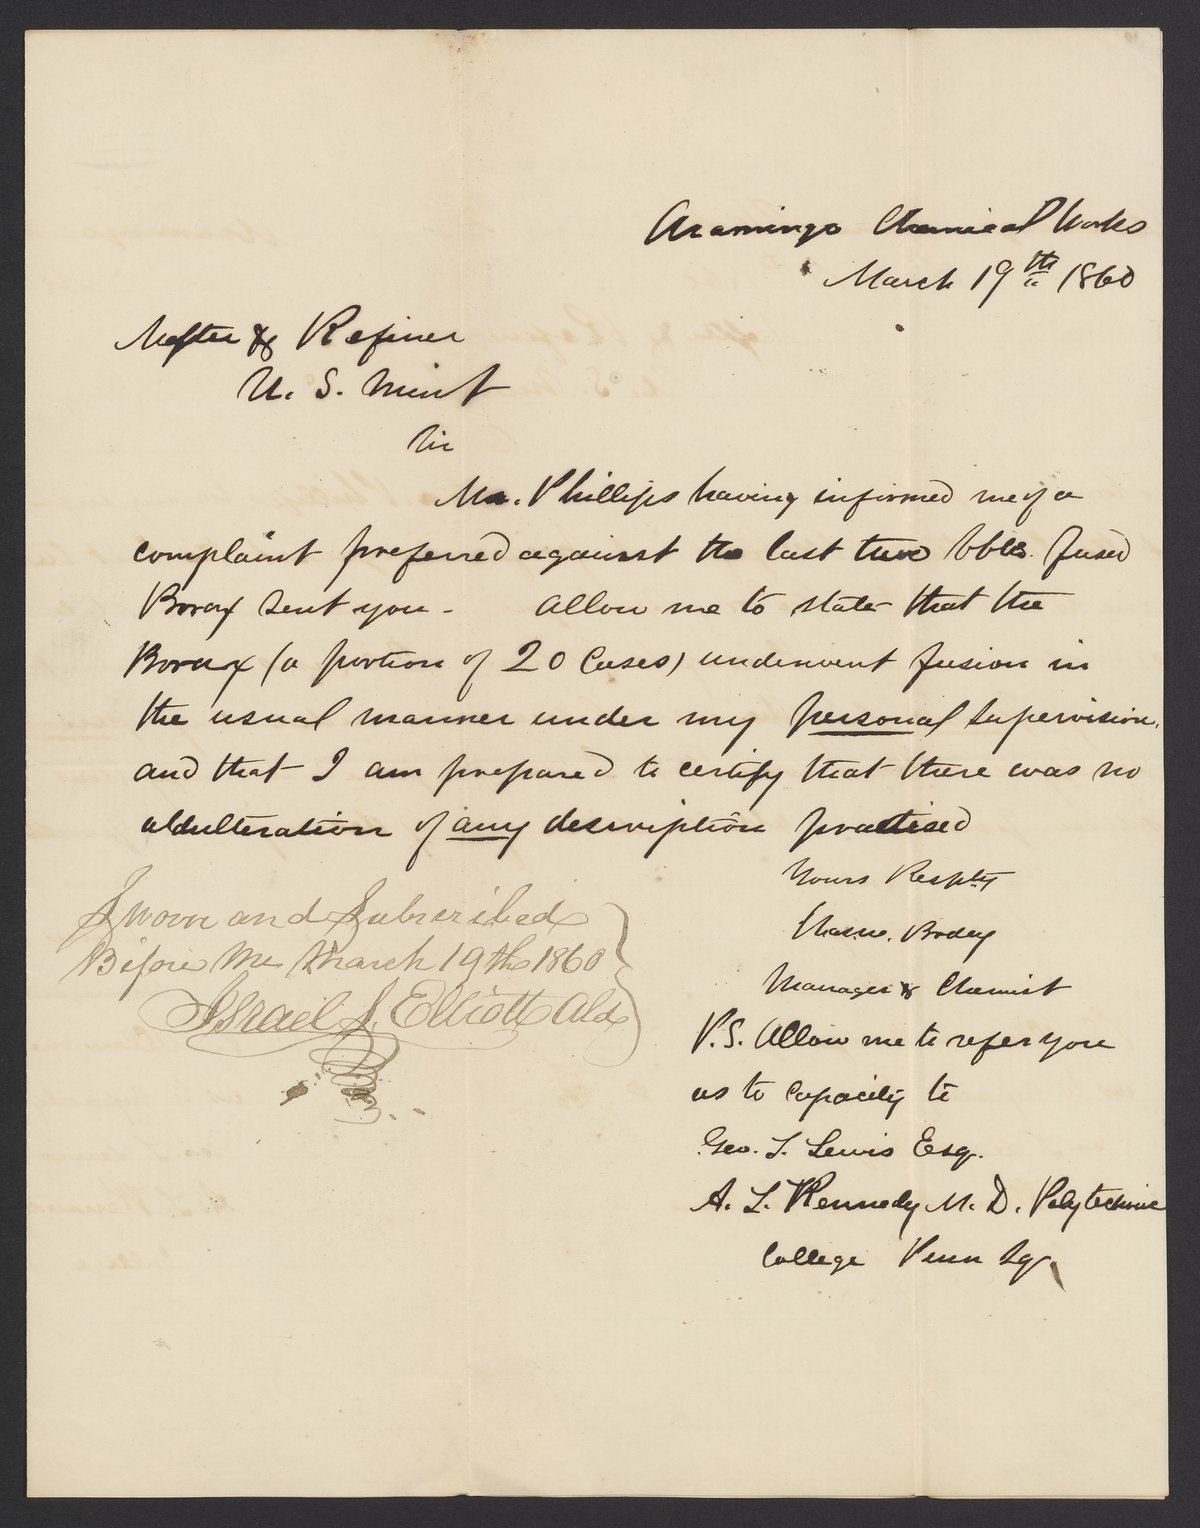 Aramingo Chemical Works
March 19th 1860
Melter & Refiner
U. S. Mint
Sir
Mr. Phillips having informed me of a
complaint preferred against the last two bbls. fused
Borax sent you - Allow me to state that the
Borax (a portion of 20 Cases) underwent fusion in
the usual manner under my personal supervision,
and that I am prepared to certify that there was no
aldulteration of any description practised
Yours Respty
Bodey
Manager & Chemist
P.S. Allow me to refer you
as to capacity to
Geo. T. Lewis Esq.
A. L. Kennedy M. D. Polytechnic
College Penn Sq.
Sworn and Subscribed
Before Me March 19th 1860
Israel J. Elliott Ald